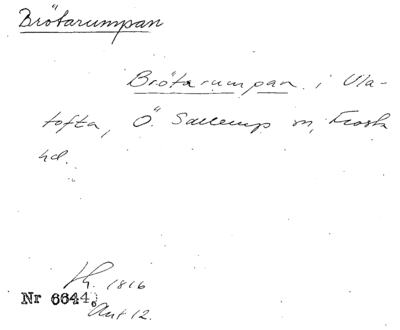 Brötarumpan
Brötarumpan i Ula-
tofta, Ö. Sallerup sn, Frosta
hd.
1816
Nr 6644.
Akt 12.